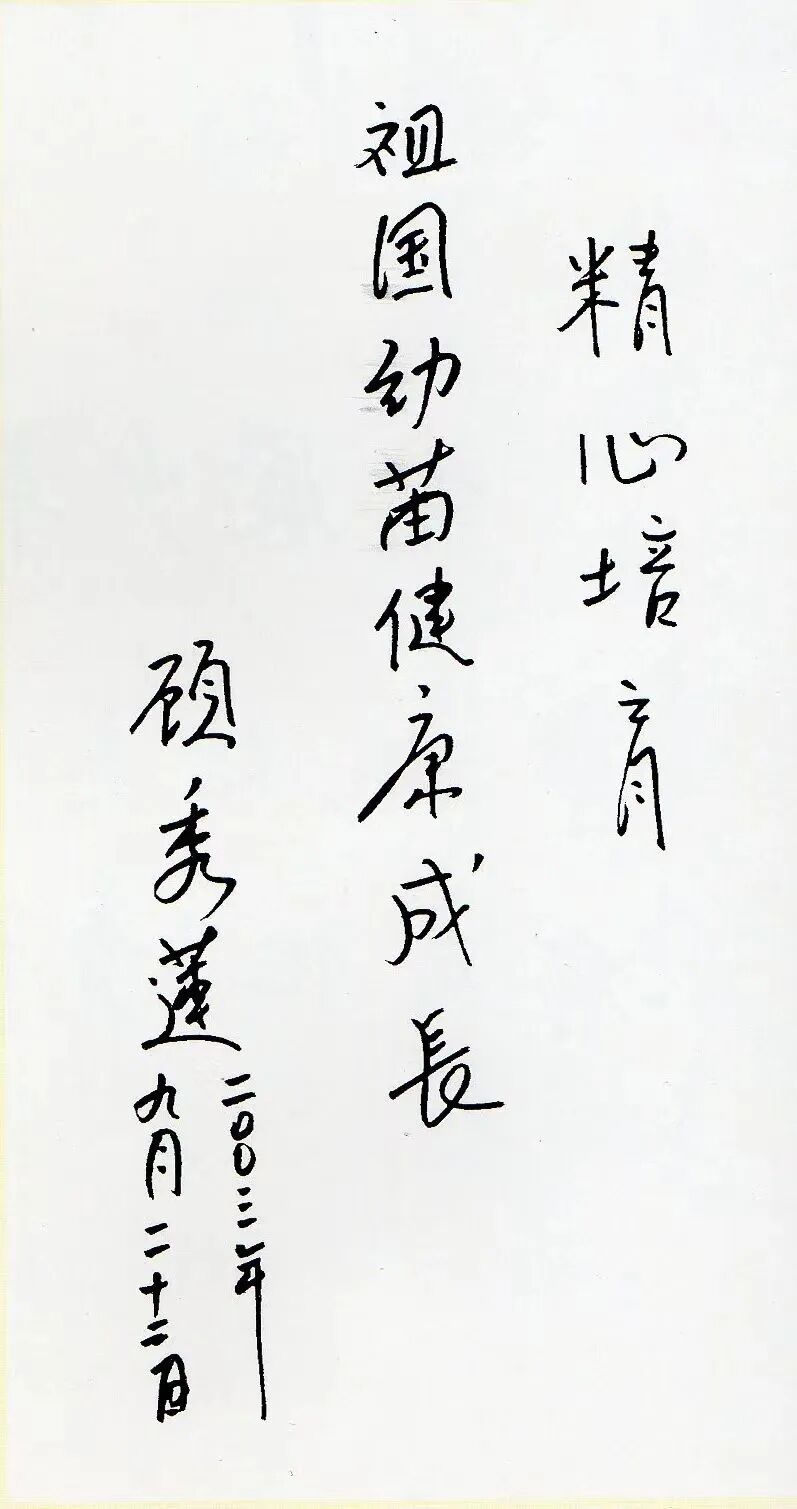 精心培育
祖国幼苗健康成長
顾秀蓮
二００三年
九月二十二日